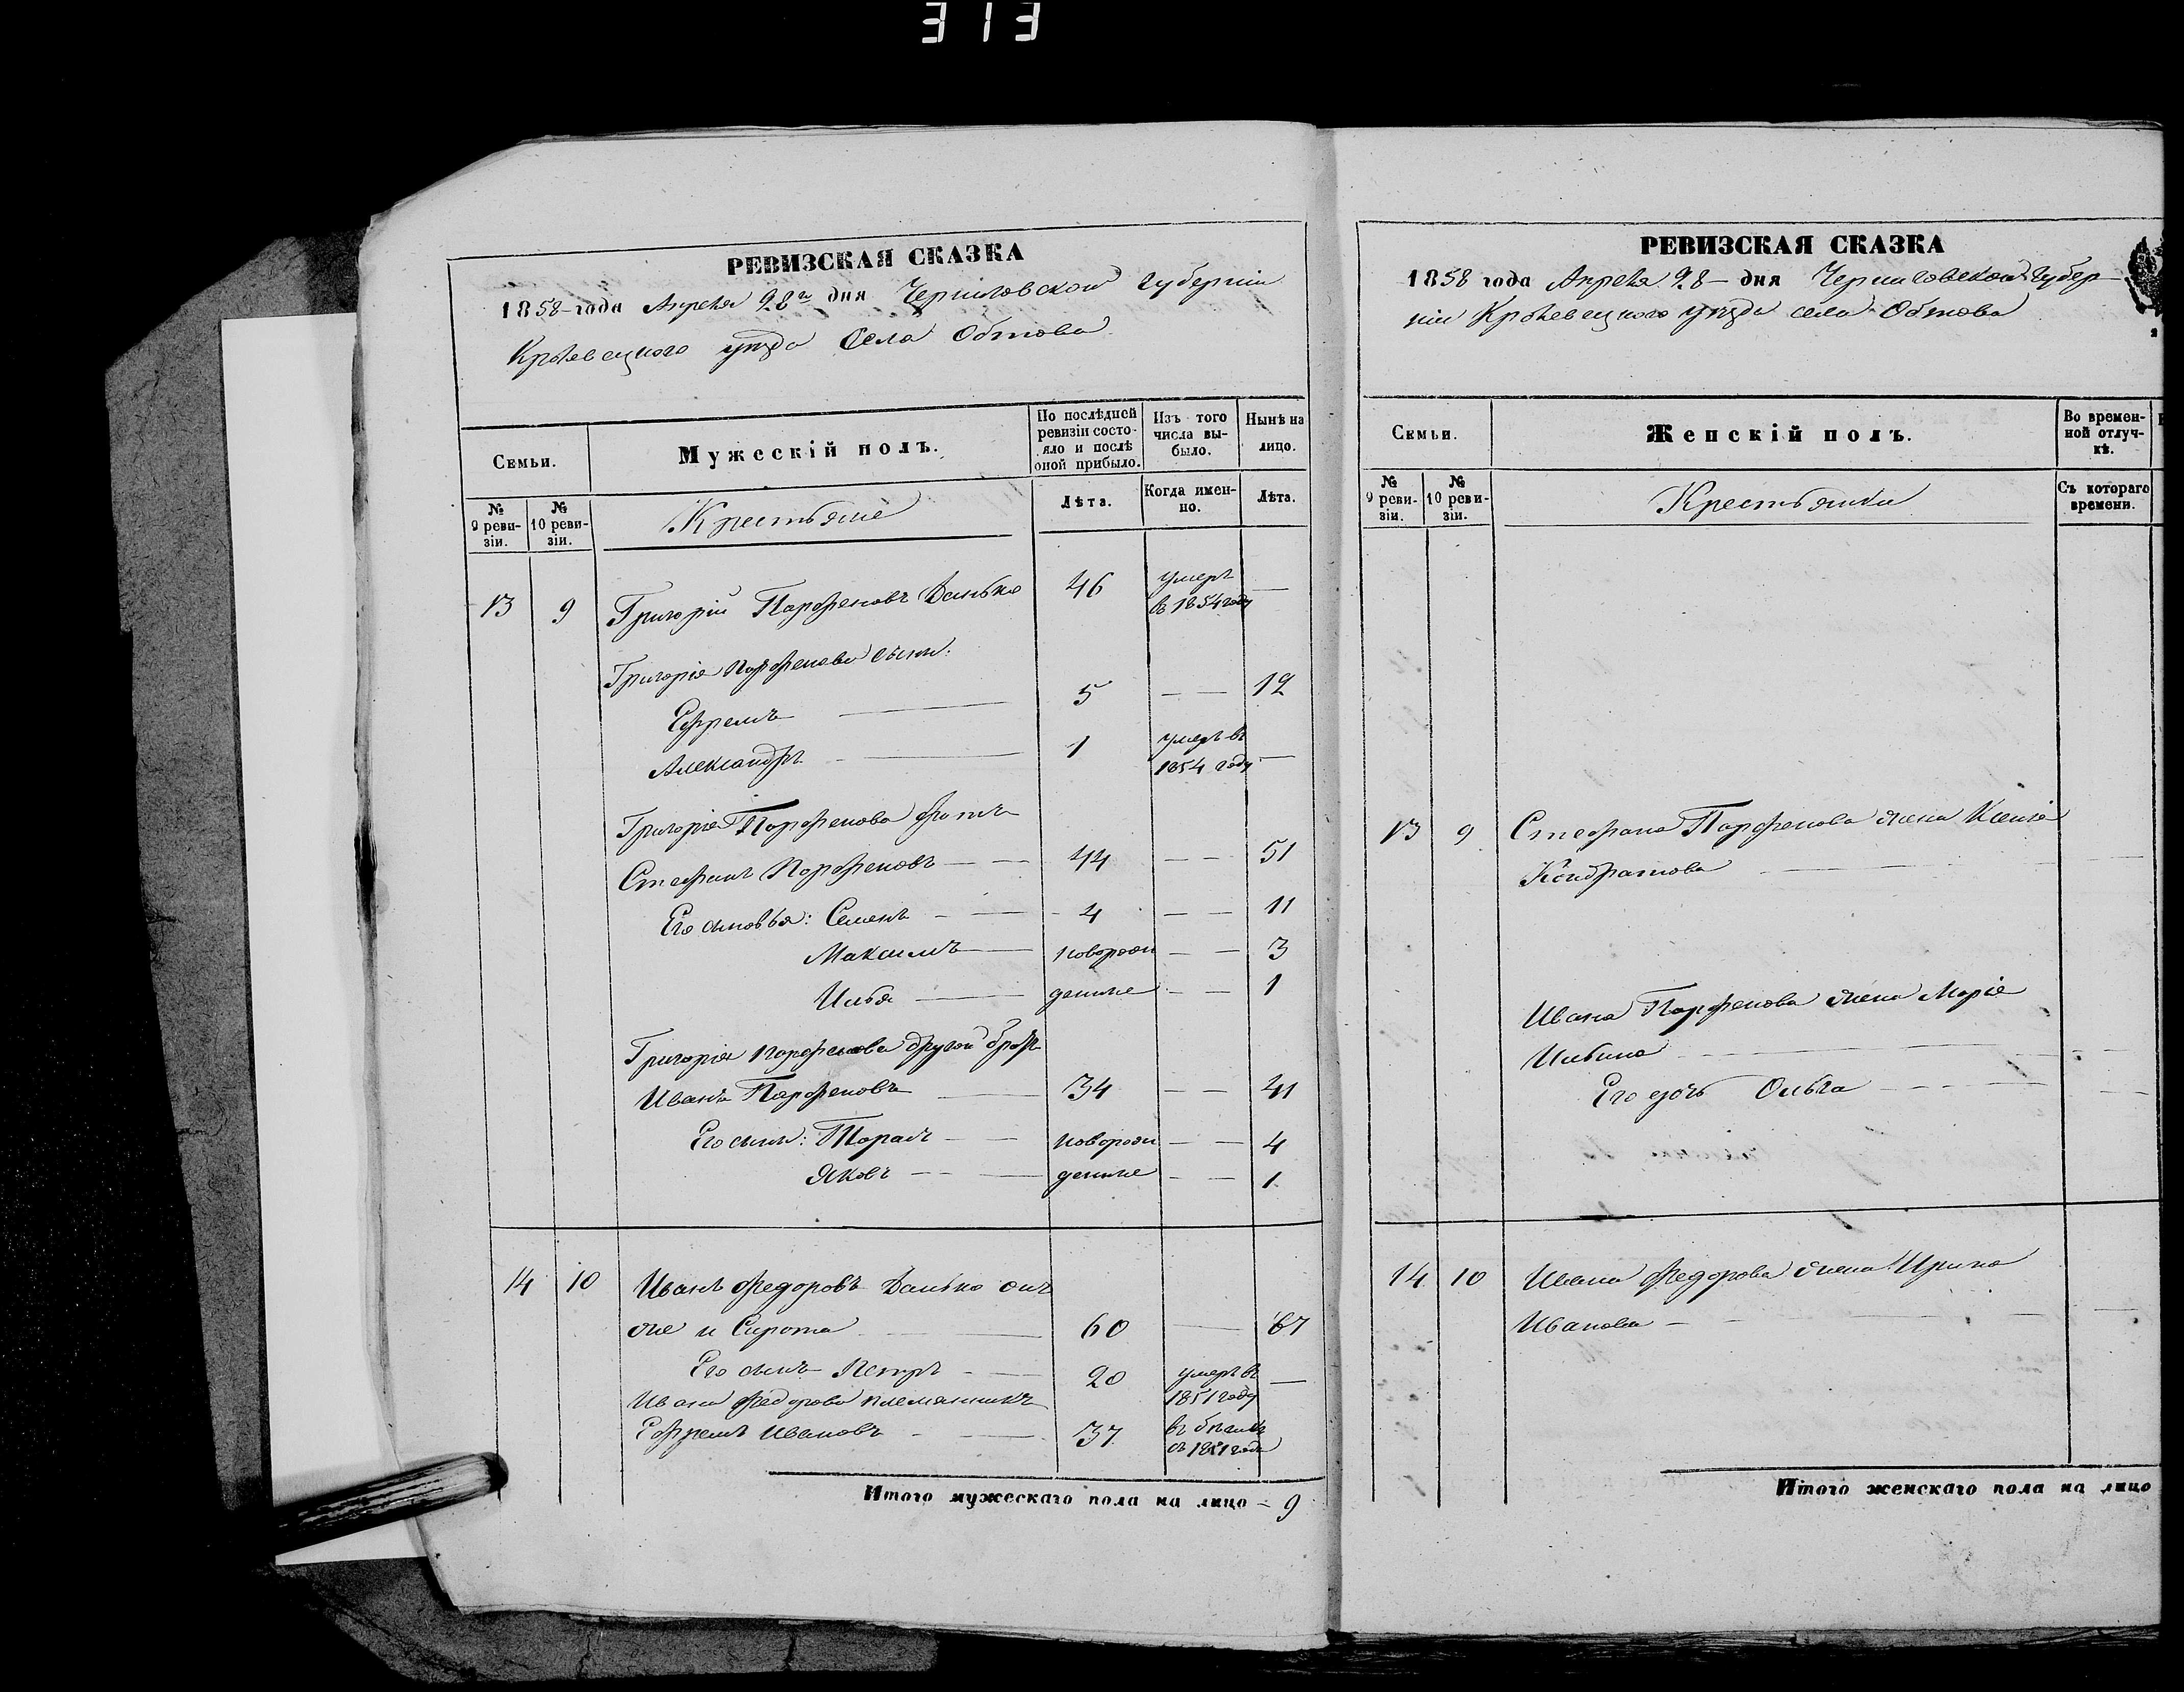 313
РЕВИЗСКАЯ СКАЗКА
1858 года Апреля 28го дня Черниговской губерніи
Кролевецкого уѣзда Села Обтова
Семьи.
Мужескій полъ.
По послѣдней ревизіи состояло и послѣ оной прибыло.
Изъ того числа выбыло.
Нынѣ на лицо.
№ 9 ревизіи.
№ 10 ревизіи.
Крестьяне
Лѣта.
Когда именно.
Лѣта.
13 9 Григорій Парфеновъ Данько 46 умеръ в 1854 году —
Григорія Парфенова сыны:
Ефремъ — 5 — — 12
Александръ — 1 умеръ въ 1854 году —
Григорія Парфенова братъ
Стефанъ Парфеновъ — — 44 — — 51
Его сыновья: Семенъ — — 4 — — 11
Максимъ — новорож — — 3
Илья — денные — — 1
Григорія Парфенова другой братъ
Иванъ Парфеновъ — 34 — — 41
Его сыны: Тарасъ — — новорож — — 4
Яковъ — — денные — — 1
14 10 Иванъ Федоровъ Данько онъ
же и Сирота — 60 — 67
Его сынъ Петръ — — 20 умеръ въ 1851 году —
Ивана Федорова племянникъ
Ефремъ Ивановъ — — 37 въ бѣгахъ съ 1851 года
Итого мужескаго пола на лицо – 9
РЕВИЗСКАЯ СКАЗКА
1858 года Апреля 28 – дня Черниговской Губер-
ніи Кролевецкого уѣзда села Обтова
Семьи.
Женскій полъ.
Во временной отлучкѣ.
№ 9 ревизіи.
№ 10 ревизіи.
Крестьянки
Съ котораго времени.
13 9 Стефана Парфенова жена Ксенія
Кондратова —
Ивана Парфенова жена Марія
Ильина —
Его дочь Ольга —
14 10 Ивана Федорова жена Ирина
Иванова —
Итого женскаго пола на лицо